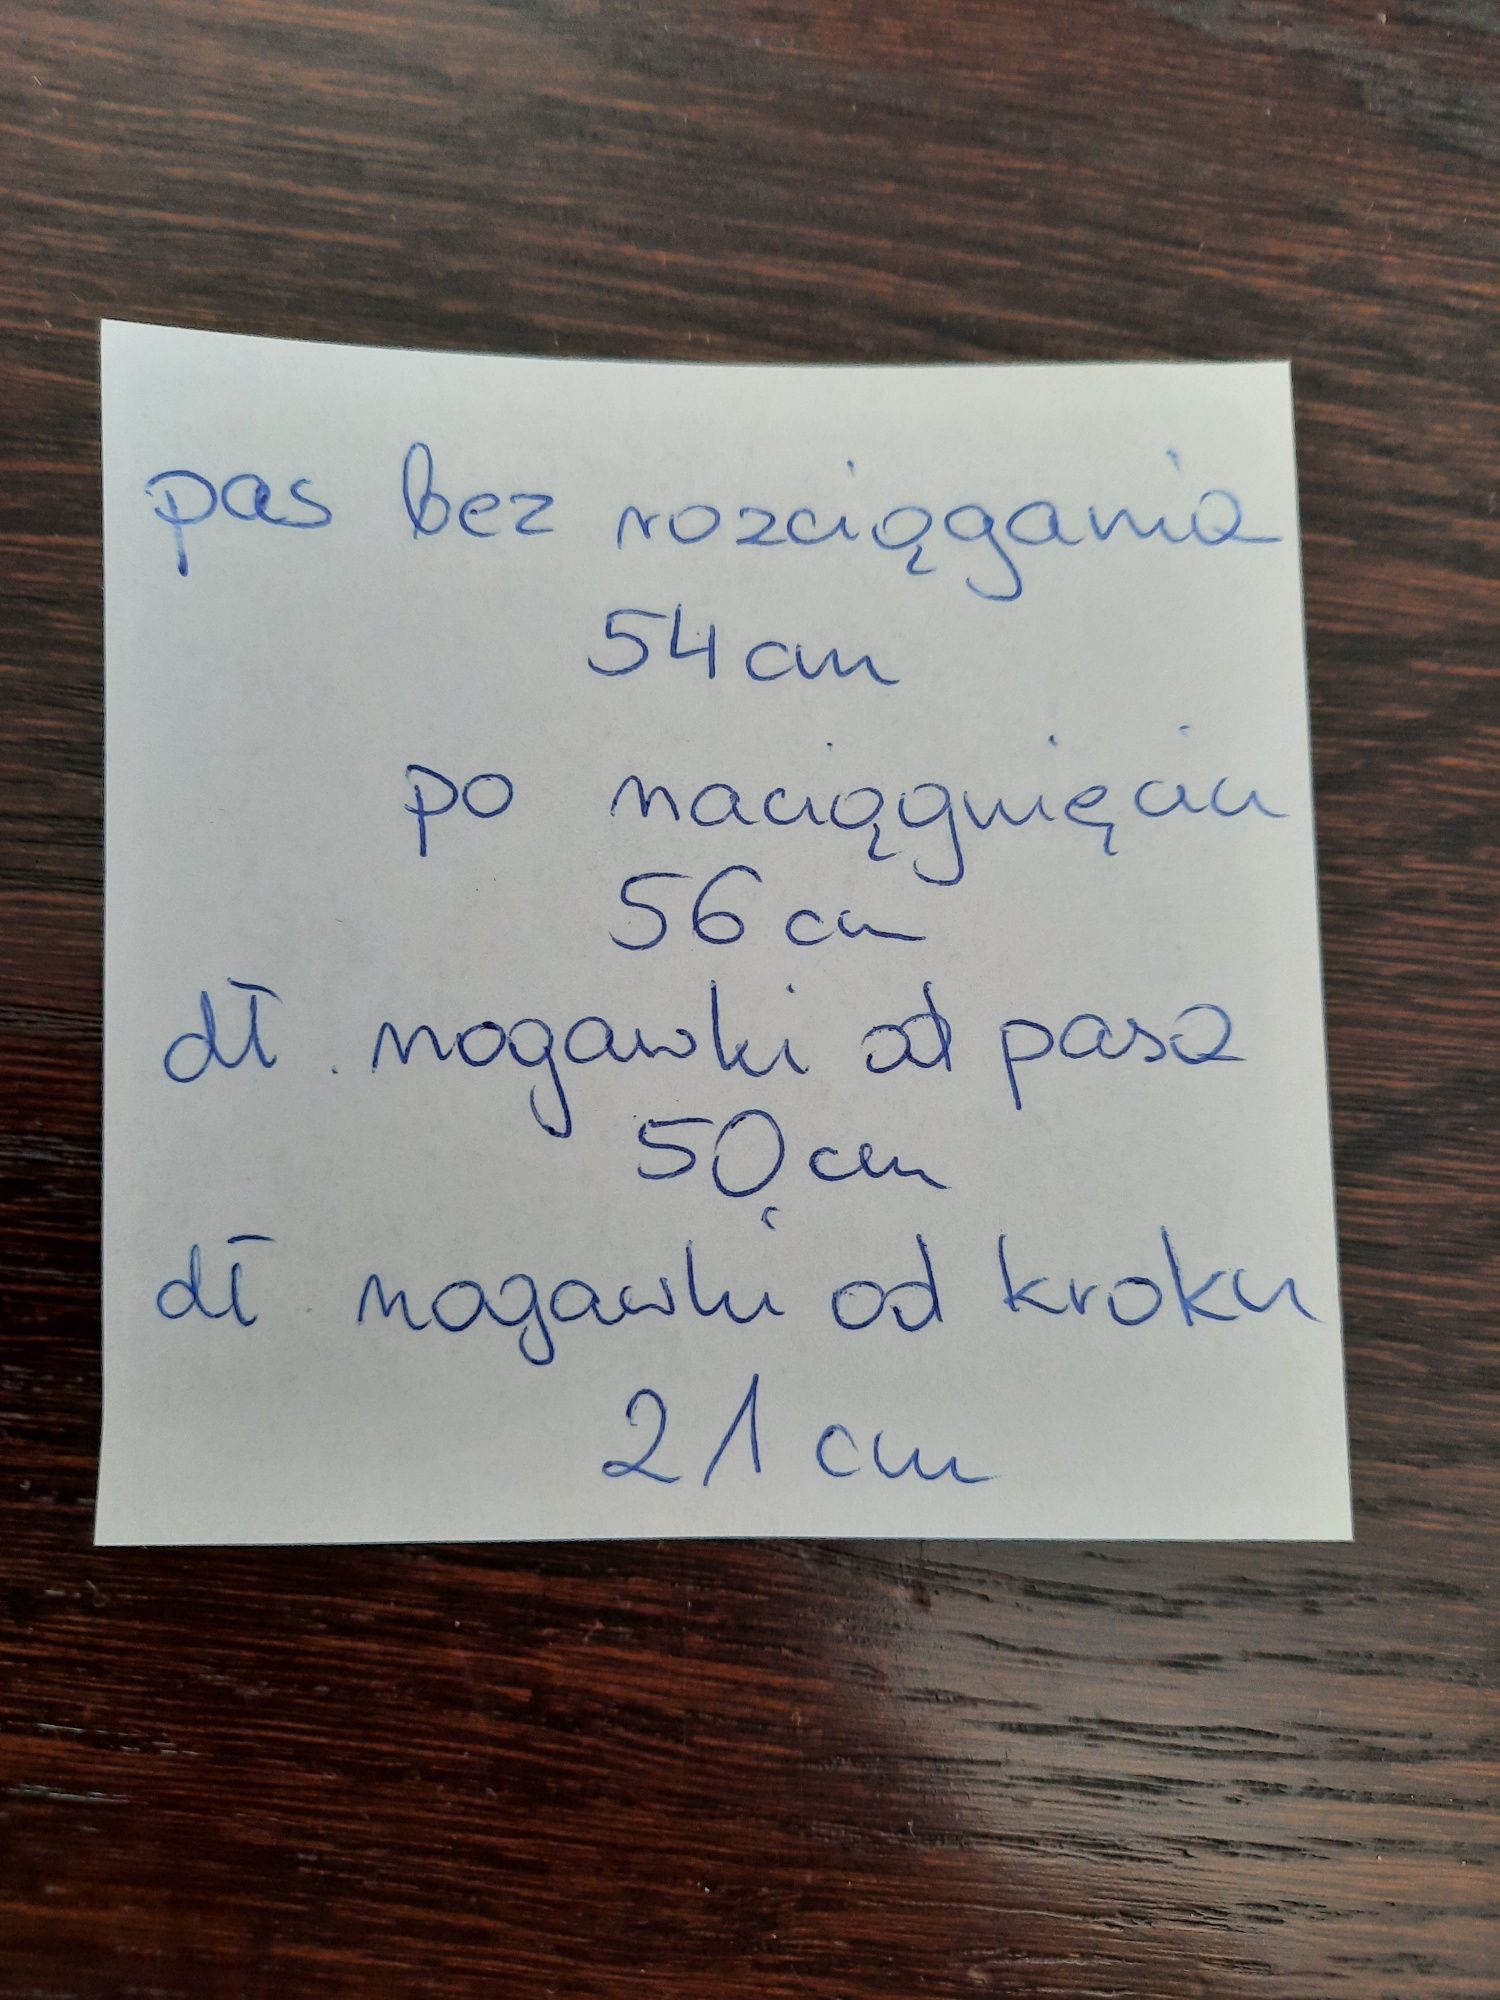 pas bez rozciągania
54 cm
po naciągnięciu
56 cm
dł. nogawki od pasa
50 cm
dł. nogawki od kroku
21 cm